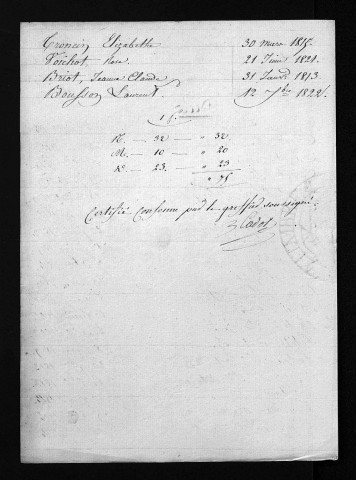 Troncin Elizabeth 30 mars 1815.
Voichot Rose 21 Juin 1821.
Briot, Jeanne Claude 31 Janv 1813
Bousson Laurent 12 7bre 1822.
N. — 32 — " 32
M. — 10 — " 20
D. — 23. — " 23
" 75
Certifié conforme par le greffier soussigné.